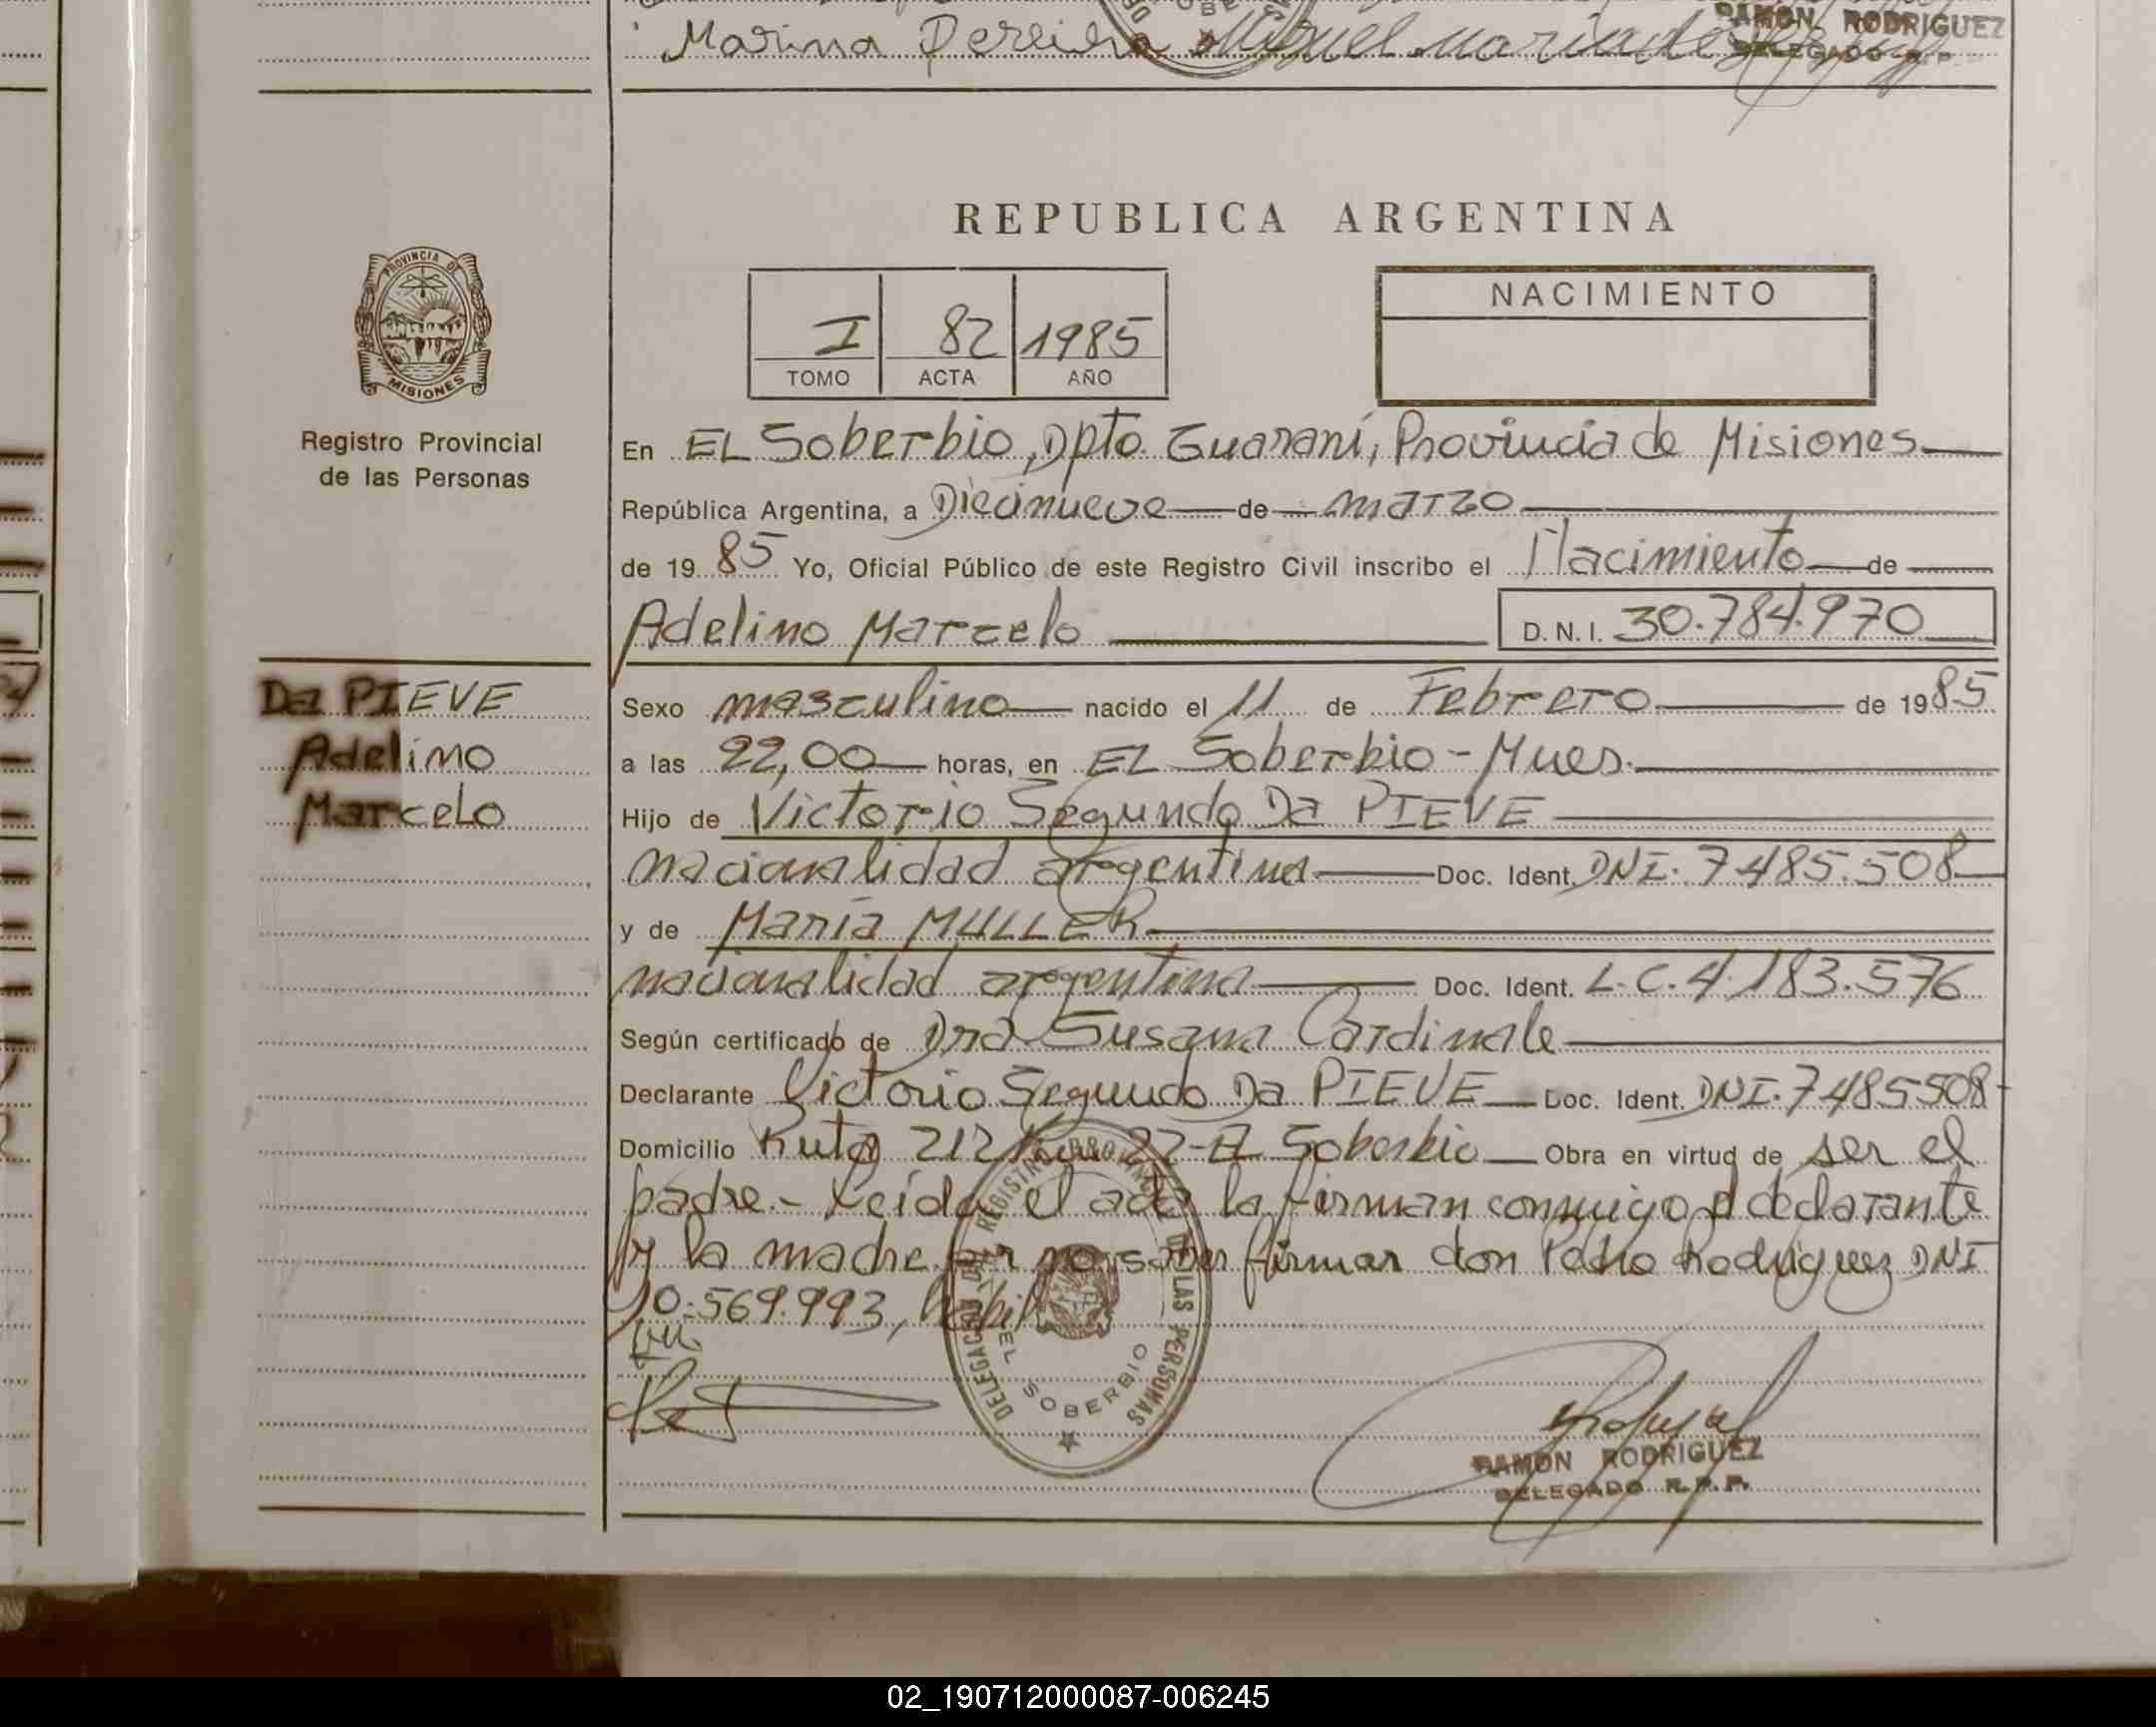 Marina Pereira Miguel
RAMON RODRIGUEZ
DELEGADO R.P.
REPUBLICA ARGENTINA
PROVINCIA DE
MISIONES
Registro Provincial
de las Personas
I 82 1985
TOMO ACTA AÑO
NACIMIENTO
En EL Soberbio, Dpto. Guaraní, Provincia de Misiones
República Argentina, a Diecinueve de marzo
de 1985 Yo, Oficial Público de este Registro Civil inscribo el Nacimiento de
Adelino Marcelo D.N.I. 30.784.970
Da PIEVE
Adelino
Marcelo
Sexo masculino nacido el 11 de Febrero de 1985
a las 22,00 horas, en EL Soberbio - Mnes.
Hijo de Victorio Segundo Da PIEVE
nacionalidad argentina Doc. Ident. DNI. 7485.508
y de María MULLER
nacionalidad argentina Doc. Ident. L.C. 4.183.576
Según certificado de Dra Susana Cardinale
Declarante Victorio Segundo Da PIEVE Doc. Ident. DNI. 7485508
Domicilio Ruta 212 Km 22-El Soberbio Obra en virtud de ser el
padre.- Leída el acta la firman conmigo el declarante
y la madre por no saber firmar don Pedro Rodriguez DNI
10.569.993, hábil
DELEGACION DEL REGISTRO PROVINCIAL DE LAS PERSONAS
EL SOBERBIO
RAMON RODRIGUEZ
DELEGADO R.P.P.
02_190712000087-006245